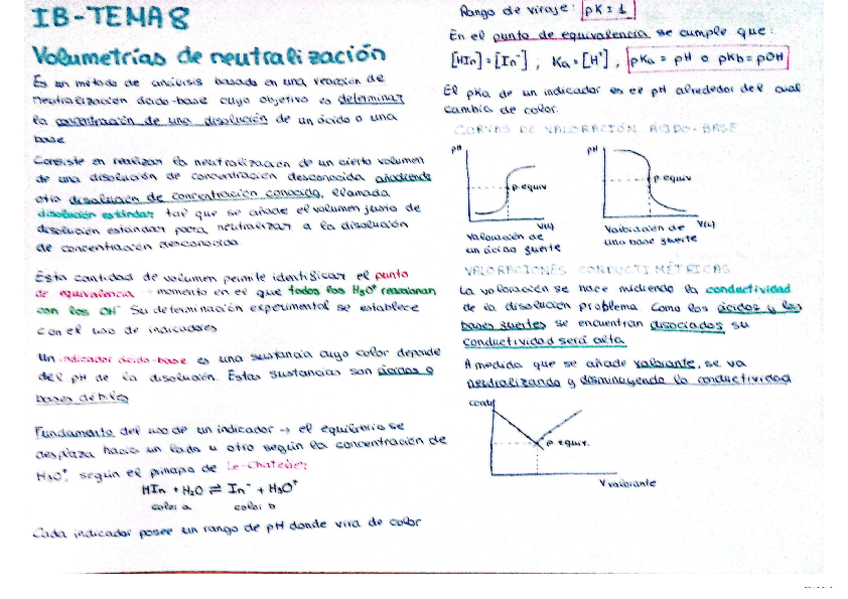 IB-TEMA 8
Volumetrías de neutralización
Es un método de análisis basado en una reacción de
neutralización ácido-base cuyo objetivo es determinar
la concentración de una disolución de un ácido o una
base
Consiste en realizar la neutralización de un cierto volumen
de una disolución de concentración desconocida añadiendo
otra disolución de concentración conocida, llamada
disolución estándar tal que se añade el volumen justo de
disolución estándar para neutralizar a la disolución
de concentración desconocida
Esta cantidad de volumen permite identificar el punto
de equivalencia → momento en el que todos los H₃O⁺ reaccionan
con los OH⁻ Su determinación experimental se establece
con el uso de indicadores
Un indicador ácido-base es una sustancia cuyo color depende
del pH de la disolución. Estas sustancias son ácidos o
bases débiles
Fundamento del uso de un indicador → el equilibrio se
desplaza hacia un lado u otro según la concentración de
H₃O⁺, según el principio de Le-Chatelier:
HIn + H₂O ⇌ In⁻ + H₃O⁺
color a color b
Cada indicador posee un rango de pH donde vira de color
Rango de viraje: pK ± 1
En el punto de equivalencia se cumple que:
[HIn] = [In⁻] ; Ka = [H⁺] , pKa = pH o pKb = pOH
El pKa de un indicador es el pH alrededor del cual
cambia de color.
CURVAS DE VALORACIÓN ÁCIDO-BASE
pH
p equiv
V(L)
Valoración de
un ácido fuerte
pH
p equiv
V(L)
Valoración de
una base fuerte
VALORACIONES CONDUCTIMÉTRICAS
La valoración se hace midiendo la conductividad
de la disolución problema Como los ácidos y las
bases fuertes se encuentran disociados su
conductividad será alta
A medida que se añade valorante, se va
neutralizando y disminuyendo la conductividad
cond
p equiv.
V valorante